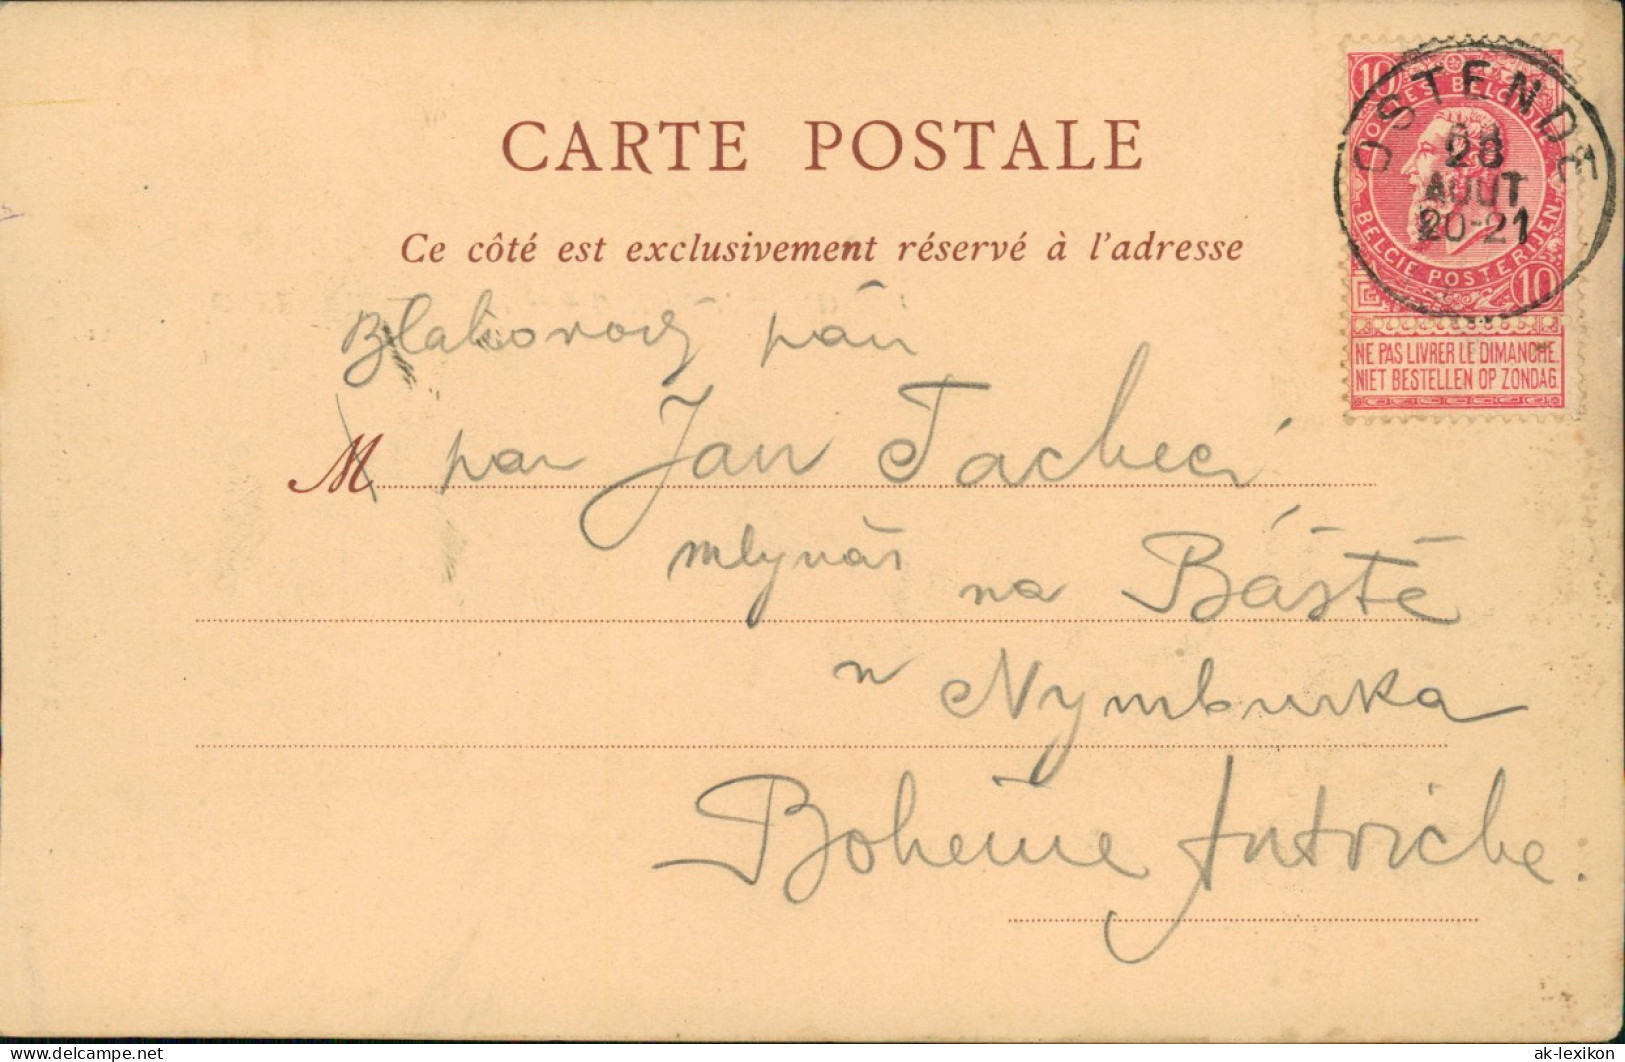 CARTE POSTALE
Ce côté est exclusivement réservé à l'adresse
10
POSTES BELGIQUE
BELGIE POSTERIJEN
10
NE PAS LIVRER LE DIMANCHE.
NIET BESTELLEN OP ZONDAG
OSTENDE
28
AOUT
20-21
pán
M pan Jan Tachecí
mlynář na Báště
u Nymburka
Bohême Autriche.
www.delcampe.net
ak-lexikon